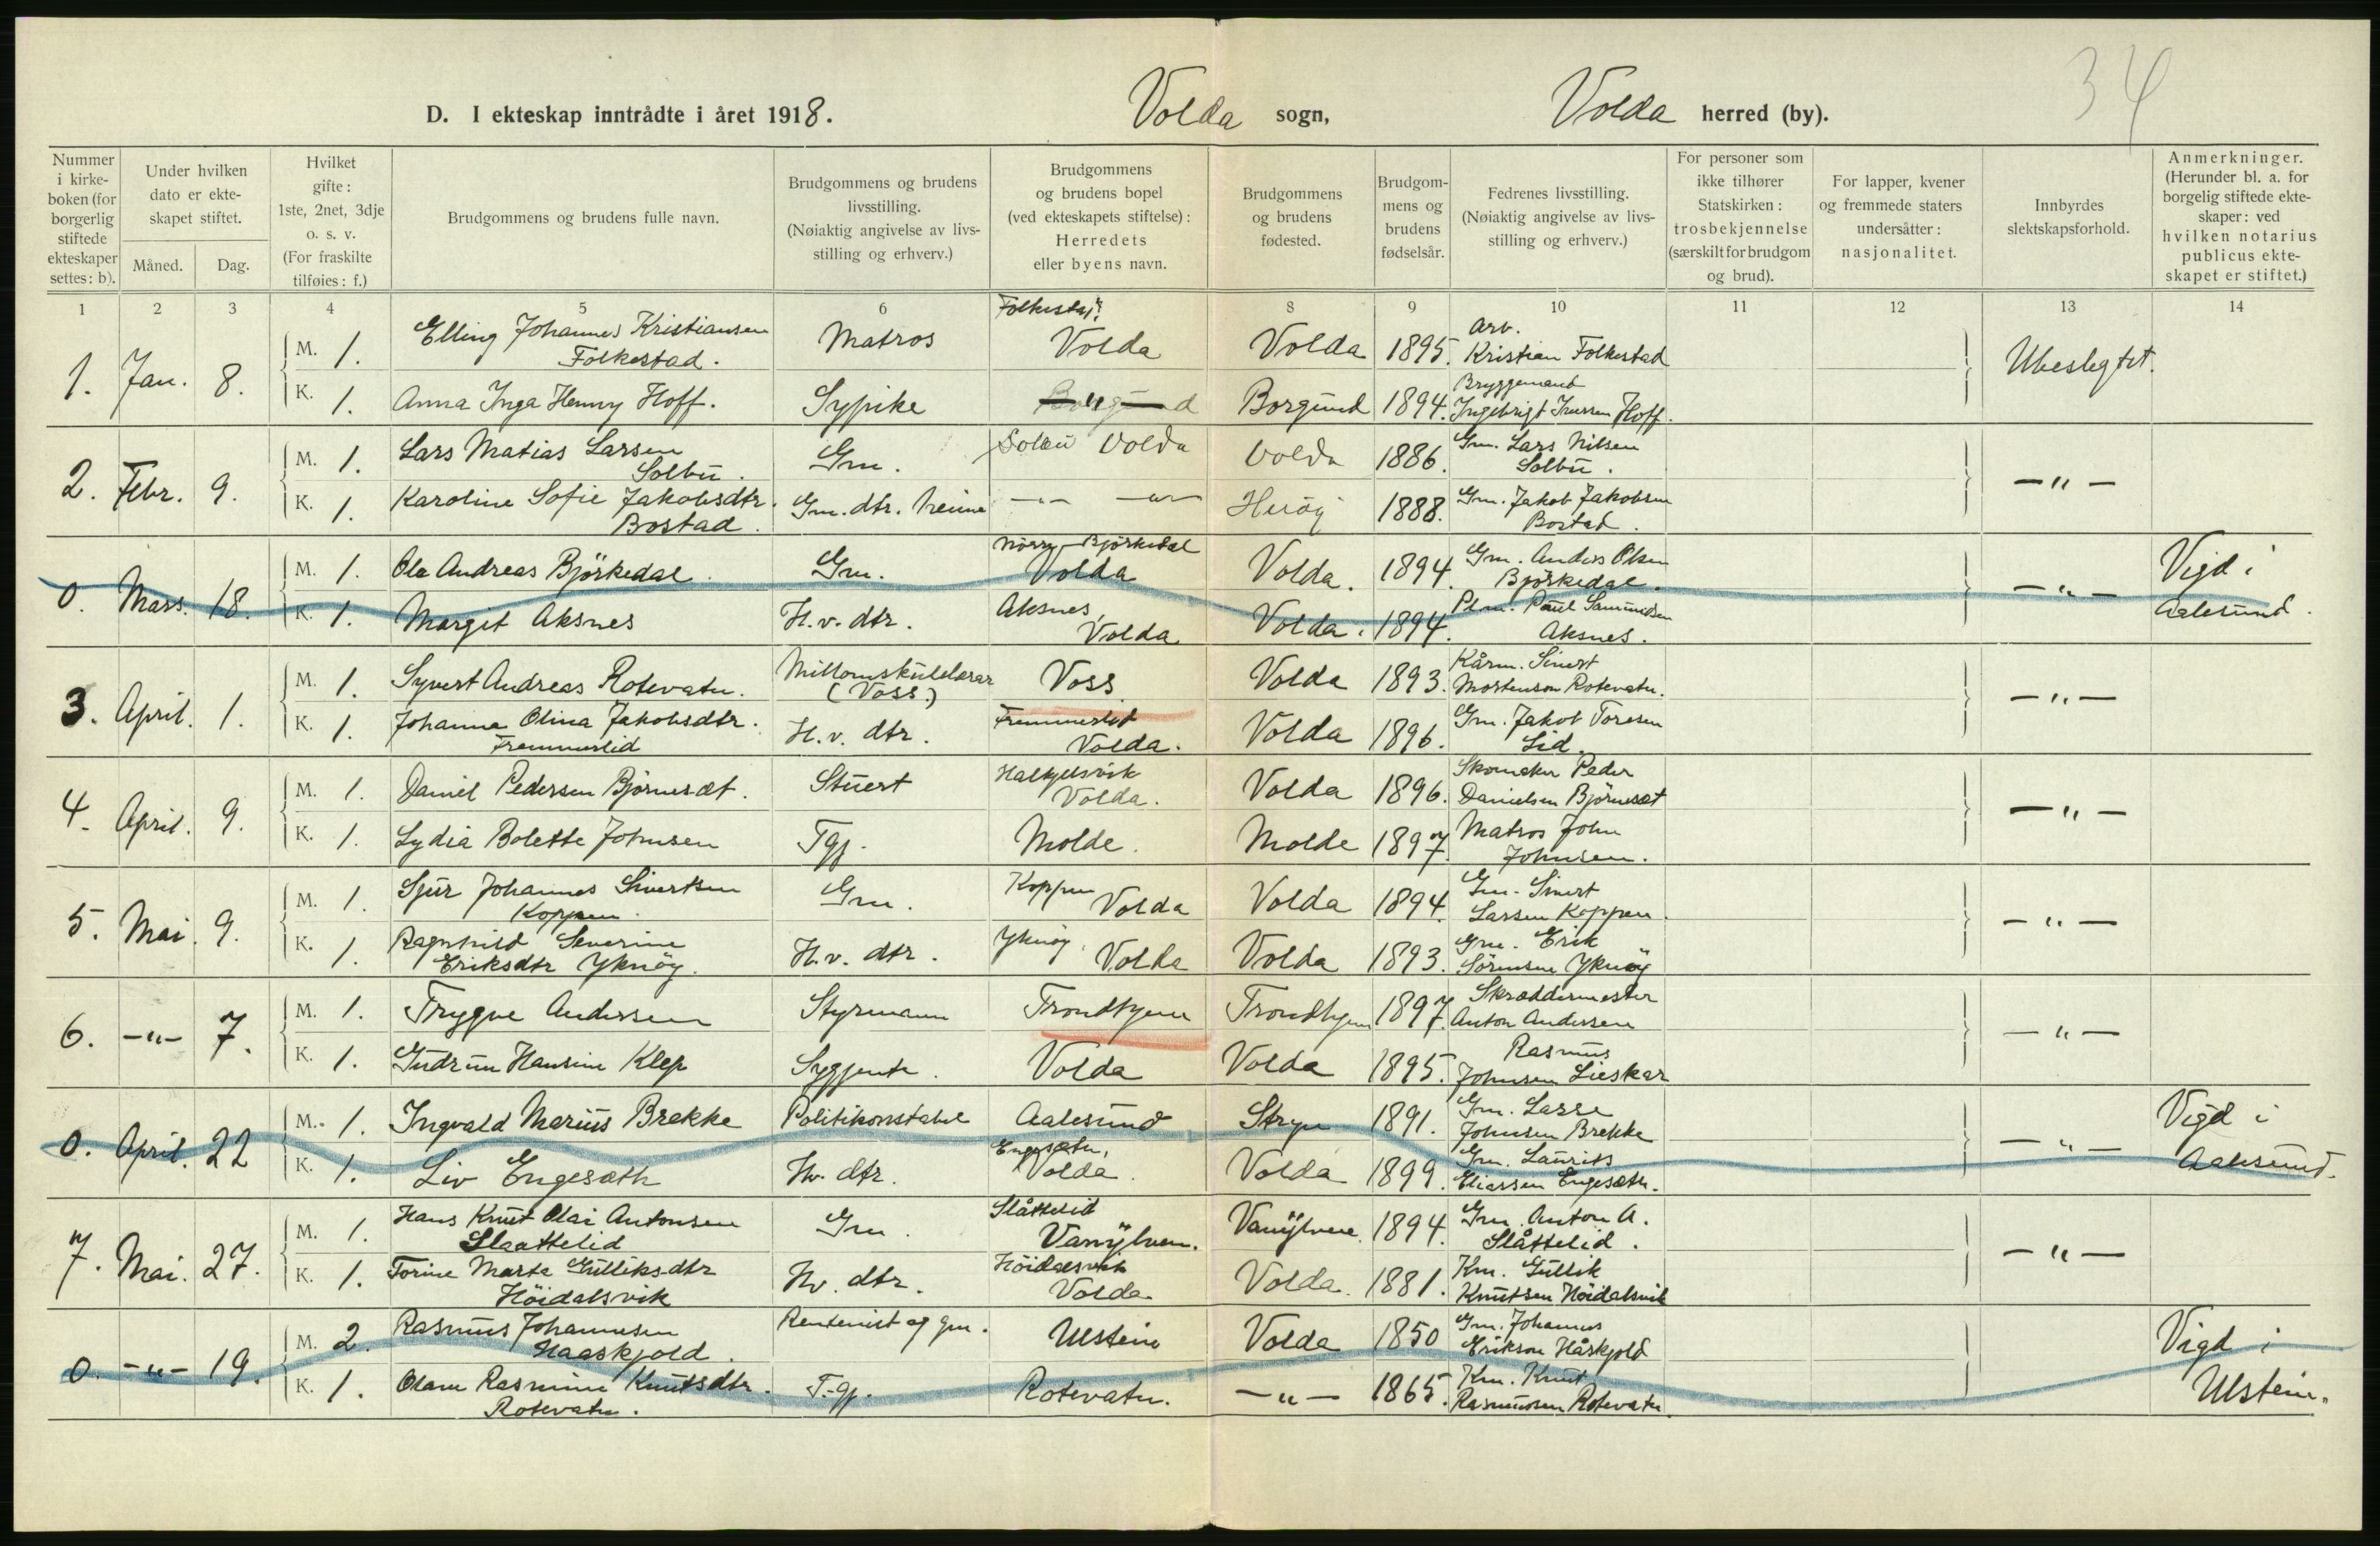 34
D. I ekteskap inntrådte i året 1918. Volda sogn, Volda herred (by).
Nummer i kirkeboken (for borgerlig stiftede ekteskaper settes: b).
Under hvilken dato er ekteskapet stiftet.
Måned. Dag.
Hvilket gifte: 1ste, 2net, 3dje o. s. v. (For fraskilte tilføies: f.)
Brudgommens og brudens fulle navn.
Brudgommens og brudens livsstilling. (Nøiaktig angivelse av livsstilling og erhverv.)
Brudgommens og brudens bopel (ved ekteskapets stiftelse): Herredets eller byens navn.
Brudgommens og brudens fødested.
Brudgommens og brudens fødselsår.
Fedrenes livsstilling. (Nøiaktig angivelse av livsstilling og erhverv.)
For personer som ikke tilhører Statskirken: trosbekjennelse (særskilt for brudgom og brud).
For lapper, kvener og fremmede staters undersåtter: nasjonalitet.
Innbyrdes slektskapsforhold.
Anmerkninger. (Herunder bl. a. for borgelig stiftede ekteskaper: ved hvilken notarius publicus ekteskapet er stiftet.)
1 2 3 4 5 6 8 9 10 11 12 13 14
1. Jan. 8. M. 1. Elling Johannes Kristiansen Folkestad. Matros Volda Volda 1895. Arb. Kristian Folkestad Ubeslegtet.
K. 1. Anna Inga Henny Hoff. Sypike Borgund 1894. Bryggemand Ingebrigt Hoff.
2. Febr. 9. M. 1. Lars Matias Larsen Solbu. Gm. Solbu Volda Volda 1886. Gm. Lars Nilsen Solbu. —"—
K. 1. Karoline Sofie Jakobsdtr. Bostad. Gm. dtr. heime —"— —"— Herøy 1888. Gm. Jakob Jakobsen Bostad.
0. Mars. 18. M. 1. Ola Andreas Björkedal. Gm. Björkedal Volda Volda. 1894. Gm. Anders Olsen Björkedal. —"— Vigd i Aalesund.
K. 1. Margit Aksnes H.v. dtr. Aksnes, Volda Volda. 1894. Paul Samundsen Aksnes.
3. April. 1. M. 1. Syvert Andreas Rotevatn. Millomskulelærar (Voss.) Voss Volda 1893. Kårm. Sivert Mortenson Rotevatn. —"—
K. 1. Johanna Olina Jakobsdtr. Fremmerlid H.v. dtr. Fremmerlid Volda. Volda 1896. Gm. Jakob Toresen Lid.
4. April. 9. M. 1. Daniel Pedersen Björnesæt. Stuert Halkjelsvik Volda. Volda 1896. Skomaker Peder Danielsen Björnesæt —"—
K. 1. Lydia Bolette Johnsen Tgj. Molde. Molde 1897. Matros John Johnsen.
5. Mai. 9. M. 1. Sjur Johannes Sivertsen Koppen. Gm. Koppen Volda Volda 1894. Gm. Sivert Larsen Koppen. —"—
K. 1. Ragnhild Severine Eriksdtr Yksnöy. H.v. dtr. Yksnöy. Volda Volda 1893. Gm. Erik Sörensen Yksnöy
6. —"— 7. M. 1. Trygve Andersen Styrmann Trondhjem Trondhjem 1897. Skræddermester Anton Andersen —"—
K. 1. Gudrun Hansine Klep Syjente. Volda Volda 1895. Rasmus Johnsen Lieskar
0. April. 22 M. 1. Ingvald Marius Brekke Politikonstabel Aalesund Stryn 1891. Gm. Lasse Johnsen Brekke —"— Vigd i Aalesund.
K. 1. Liv Engesæth Hv. dtr. Engesætn, Volda. Volda 1899. Gm. Laurits Eliassen Engesætn.
7. Mai. 27. M. 1. Hans Knut Olai Antonsen Slaattelid Gm. Slåttelid Vanylven. Vanylven. 1894. Gm. Anton A. Slåttelid. —"—
K. 1. Torine Marta Gulliksdtr Höidalsvik Hv. dtr. Höidalsvik Volda. Volda. 1881. Km. Gullik Knutsen Höidalsvik
0. —"— 19. M. 2. Rasmus Johannesen Haaskjold. Rentenist og gm. Ulstein Volda 1850 Gm. Johannes Erikson Håskjold Vigd i Ulstein.
K. 1. Rasmine Knutsdtr. Rotevatn. T.gj. Rotevatn. —"— 1865. Km. Knut Rasmussen Rotevatn.